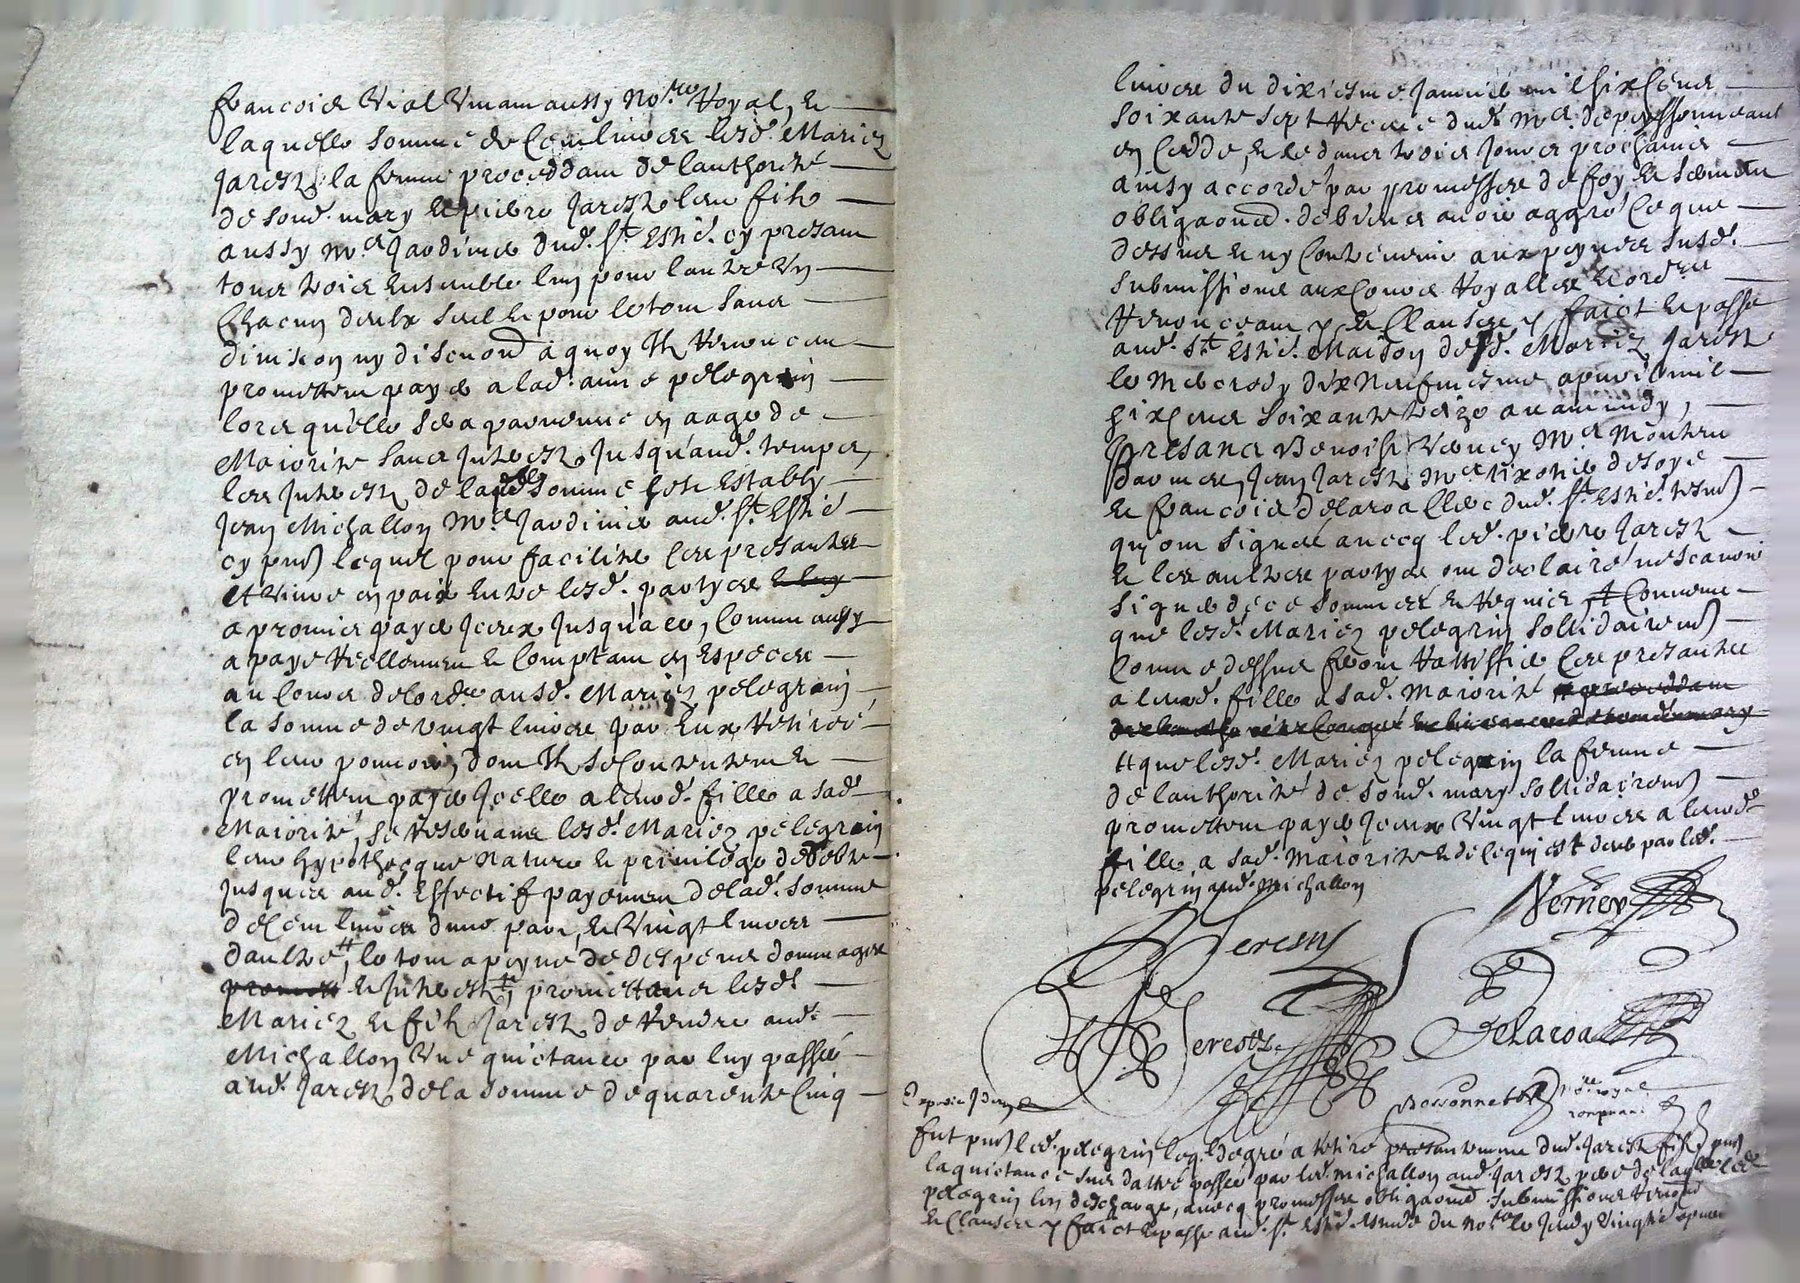 francois Vial Vivant aussy no.re Royal, et
laquelle somme de cent livres lesd. Mariez
Jarest, la femme proceddant de lauthorité
de sond. mary et pierre Jarest leur filz
aussy M.e Jardinier dud. S.t Esti.e cy presant
tous trois ensemble lun pour lautre un
chacun deulx seul et pour le tout sans
division ny discution a quoy Ilz renoncent
promettent payer a lad. anne pelegrin
lors quelle sera parvenue en aage de
Maiorité sans Interest, Jusqu'aud. temps,
les Interest de lad. somme sont Estably
Jean Michallon M.e Jardinier aud. S.t Esti.e
cy pnt lequel pour faciliter les presantes
et vivre en paix entre lesd. partyes et luy
a promis payer Iceux Jusqu'a ce, comme aussy
a payé reellement et comptant en Especes
au cours de lord.ce ausd. Mariez pelegrin
la somme de vingt livres par Eux retirée
en leur pouvoir, dont Ilz se contentent et
promettent payer Icelle a leurd. fille a sad.
Maiorité, se reservans lesd. Mariez pelegrin
leur hypothecque nature et privilege de debte
Jusques aud. Effectif payement de lad. somme
de cent livres dune part, et vingt livres
daultre, le tout a peyne de despens dommages
promett et Interestz, promettans lesd.
Mariez et filz Jarest de rendre aud.
Michallon une quictance par luy passée
aud. Jarest de la somme de quarente cinq
livres du dixiesme Janvier mil six cens
soixante sept receue dud. M.e
en cedde, et ce dans trois Jours prochains
ainsy accordé par promesses de foy et serment
obligaons. de biens avoir aggré ce que
dessus et ny contrevenir aux peynes susd.
submissions aux cours Royalles et ord.res
renonceant & et clauses & faict et passé
aud. S.t Esti.e Maison desd. Mariez Jarest
le Mecredy dix neufviesme apvril mil
six cens soixante treize avant midy,
presans Benoist Verney M.e
Jean Jarest M.e tixotier de soye
et francois delaroa clerc dud. S.t Esti.e tesm.
qui ont signé avecq led. pierre Jarest
et les aultres partyes ont declairé ne scavoir
signer de ce sommés et requis, # Convenu
que lesd. Mariez pelegrin sollidairem.
comme dessus feront rattiffier ces presantes
a leurd. fille a sad. maiorité
# que lesd. Mariez pelegrin la femme
de lauthorité de sond. mary sollidairem.
promettent payer Iceux vingt livres a leurd.
fille a sad. maiorité et ce qui est deub par led.
pelegrin aud. Michallon
Verney
Jerestz
Jerestz
Delaroa
Bessonnet No.re royal
Expedié
fut pnt led. pelegrin leq. de gré a retiré presantement dud. Jarest filz pnt
la quictance sus dattée passée par led. michallon aud. Jarest pere de laq.lle led.
pelegrin len descharge, avecq promesses obligaons. submissions renond.
et clauses & faict et passé aud. S.t Esti.e estude du no.re le Jeudy vingt